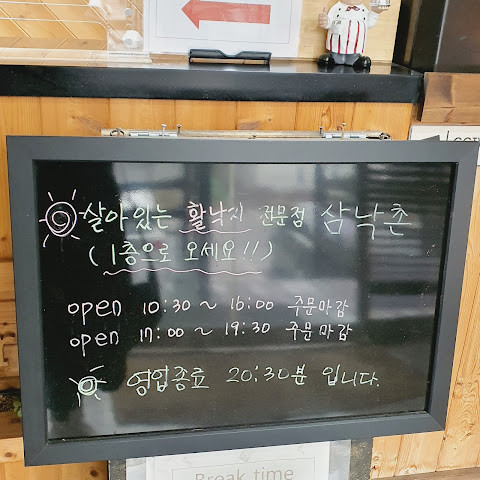 살아있는 활낙지 전문점 삼낙촌
(1층으로 오세요!!)
open 10:30 ~ 16:00 주문마감
open 17:00 ~ 19:30 주문마감
영업종료 20:30분 입니다.
Break time